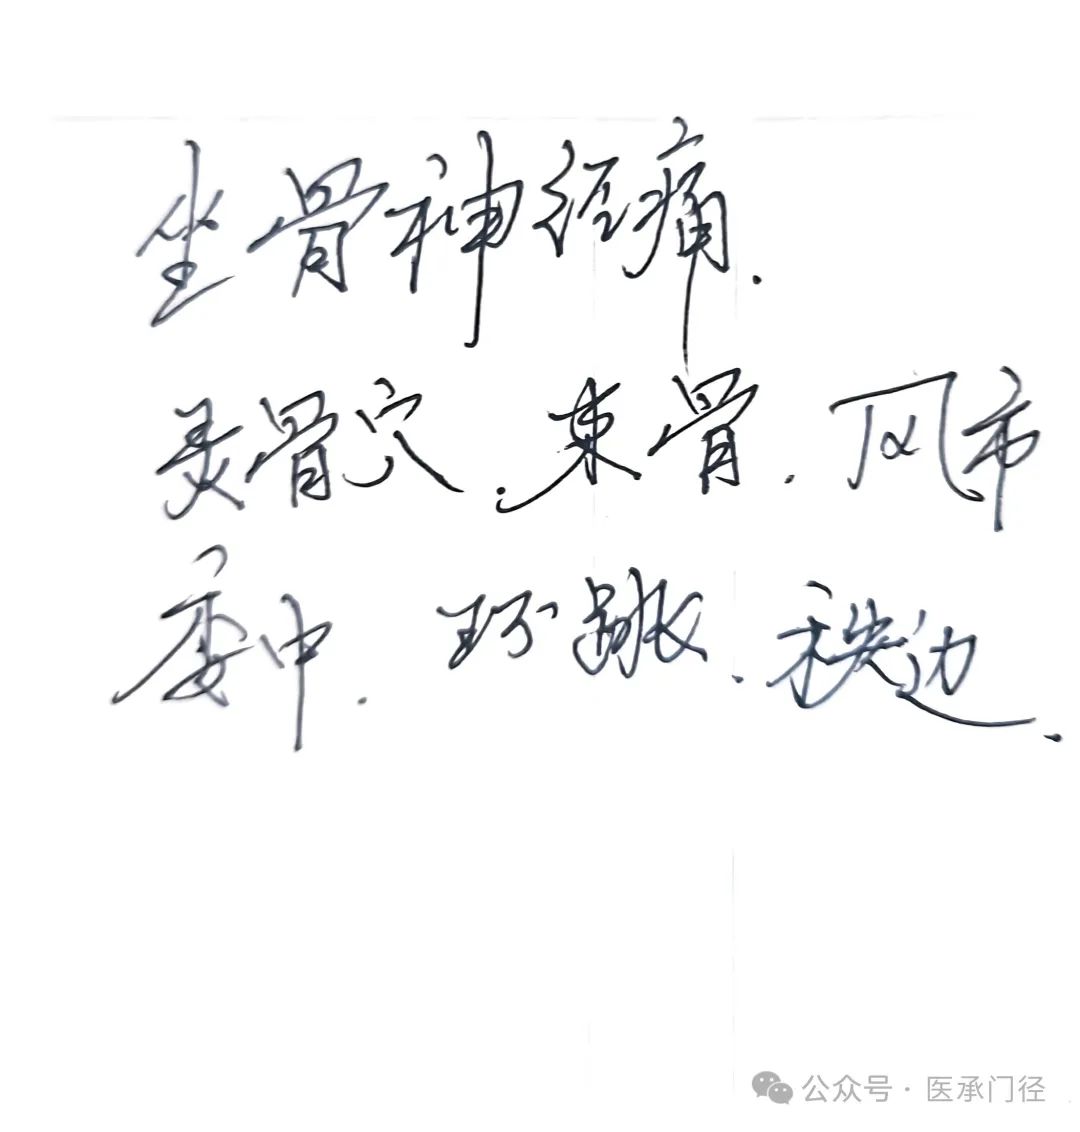 坐骨神经痛.
灵骨穴.束骨.风市
委中.环跳.秩边.
公众号·医承门径